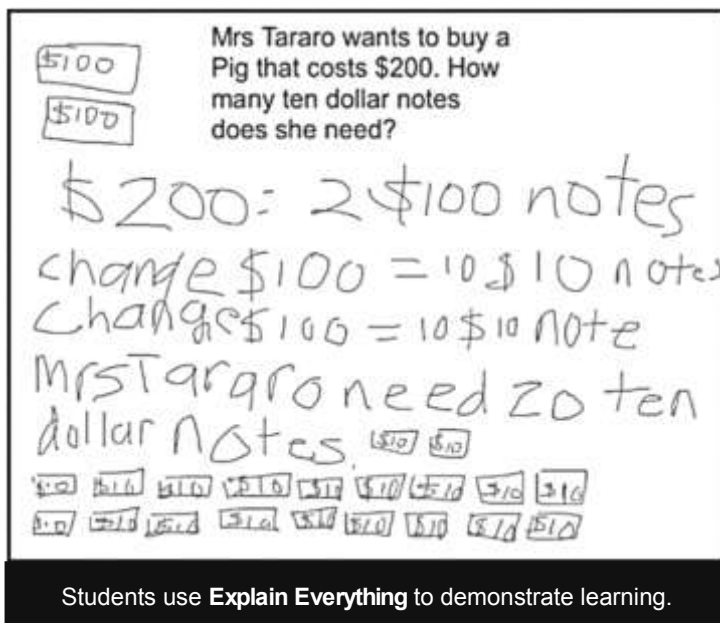 $100
$100
Mrs Tararo wants to buy a
Pig that costs $200. How
many ten dollar notes
does she need?
$200: 2 $100 notes
change $100 = 10 $10 notes
Change $100 = 10 $10 note
Mrs Tararo need 20 ten
dollar notes. $10 $10
$10 $10 $10 $10 $10 $10 $10 $10 $10
$10 $10 $10 $10 $10 $10 $10 $10 $10
Students use Explain Everything to demonstrate learning.